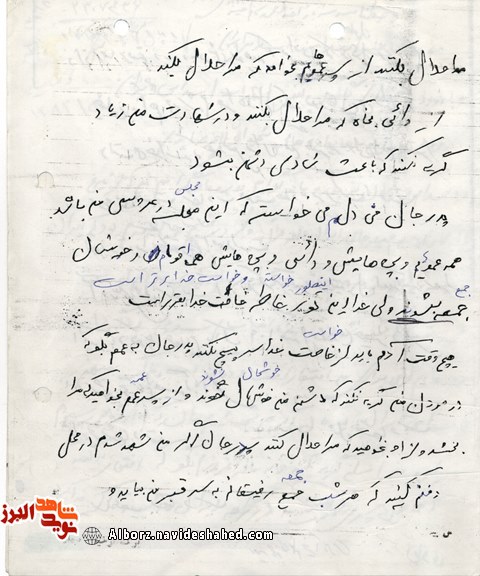 مرا حلال بکنند از پسر عمویم بخواهد که مرا حلال بکند
از دائی بخواه که مرا حلال بکنند و در شهادت من زیاد
گریه نکنند که باعث شادی دشمن بشود
پدر جان من دلم می خواسته که این مجلس عروسی من باشد
همه عمویم و بچه هایش و دائی و بچه هایش همه اقوام در خوشحال
جمع
جمع بشوند ولی خدا این طور بخاطر خواست خدا بهتر است
اینطور خواسته و خواست خدا برتر است
خواست
هیچ وقت آدم باید از خواست خدا سرپیچی نکند پدر جان به عمم بگو که
خوشحال نشوند عمه
در مردن من گریه نکند که دشمن من خوشحال نشوند و از پسر عمم بخواهید که مرا
ببخشد و از او بخواهید که مرا حلال کنند پدر جان اگر من شهید شدم در محل
جمعه
دفنم کنید که هر شب جمع رفیقانم به سر قبر من بیاید و
شاهد
نوید
البرز
Alborz.navideshahed.com